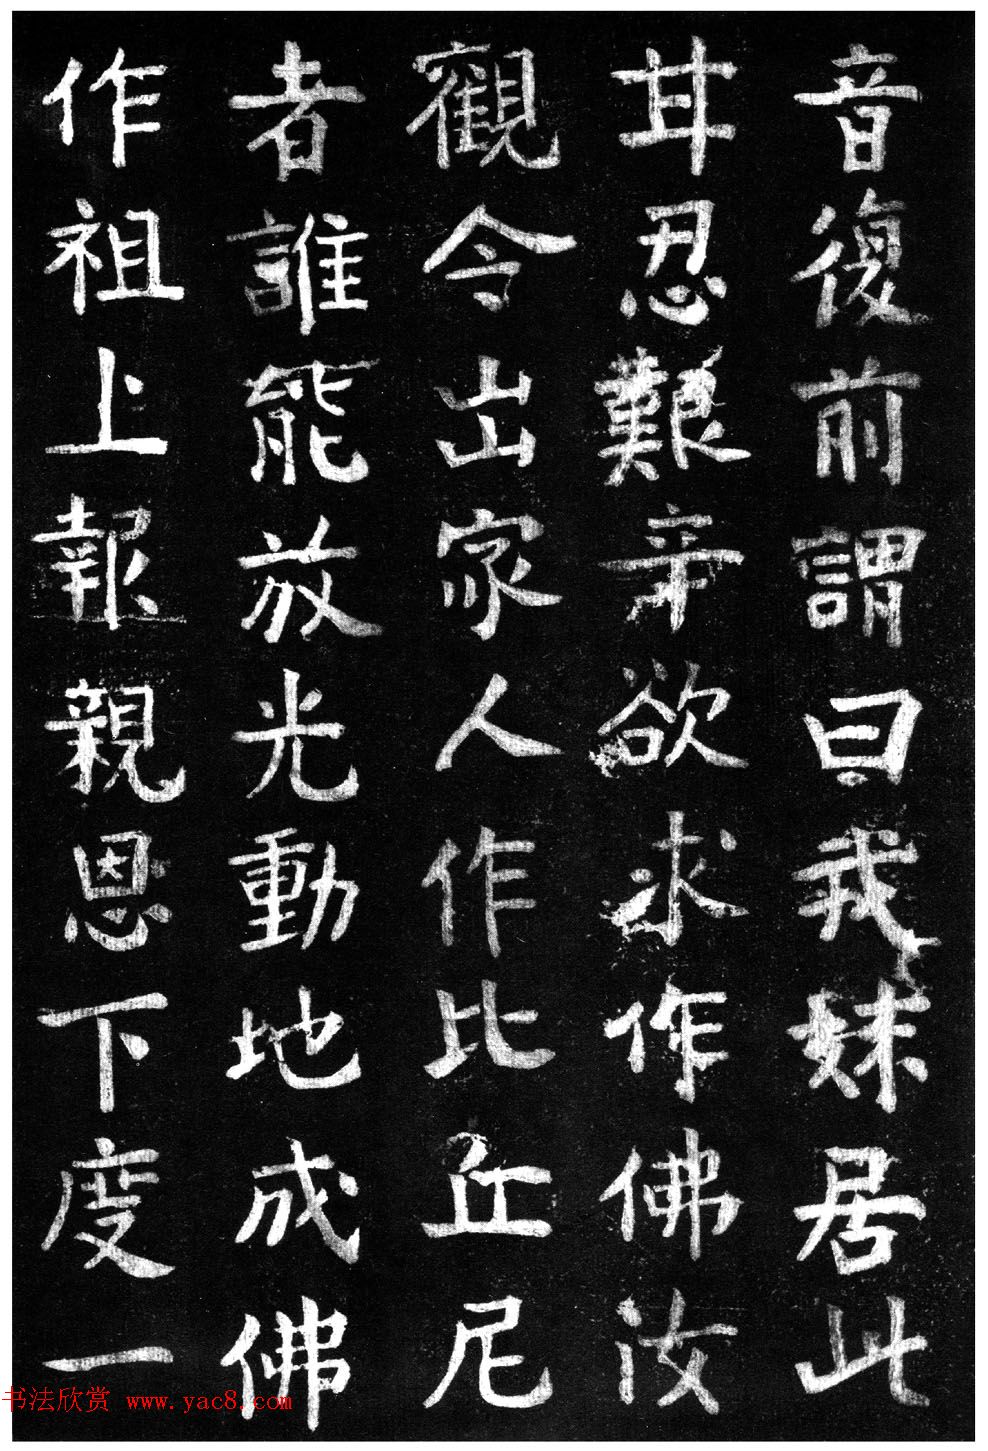 音復前謂曰我妹居此
甘忍艱辛欲求作佛汝
觀今出家人作比丘尼
者誰能放光動地成佛
作祖上報親恩下度一
书法欣赏 www.yac8.com